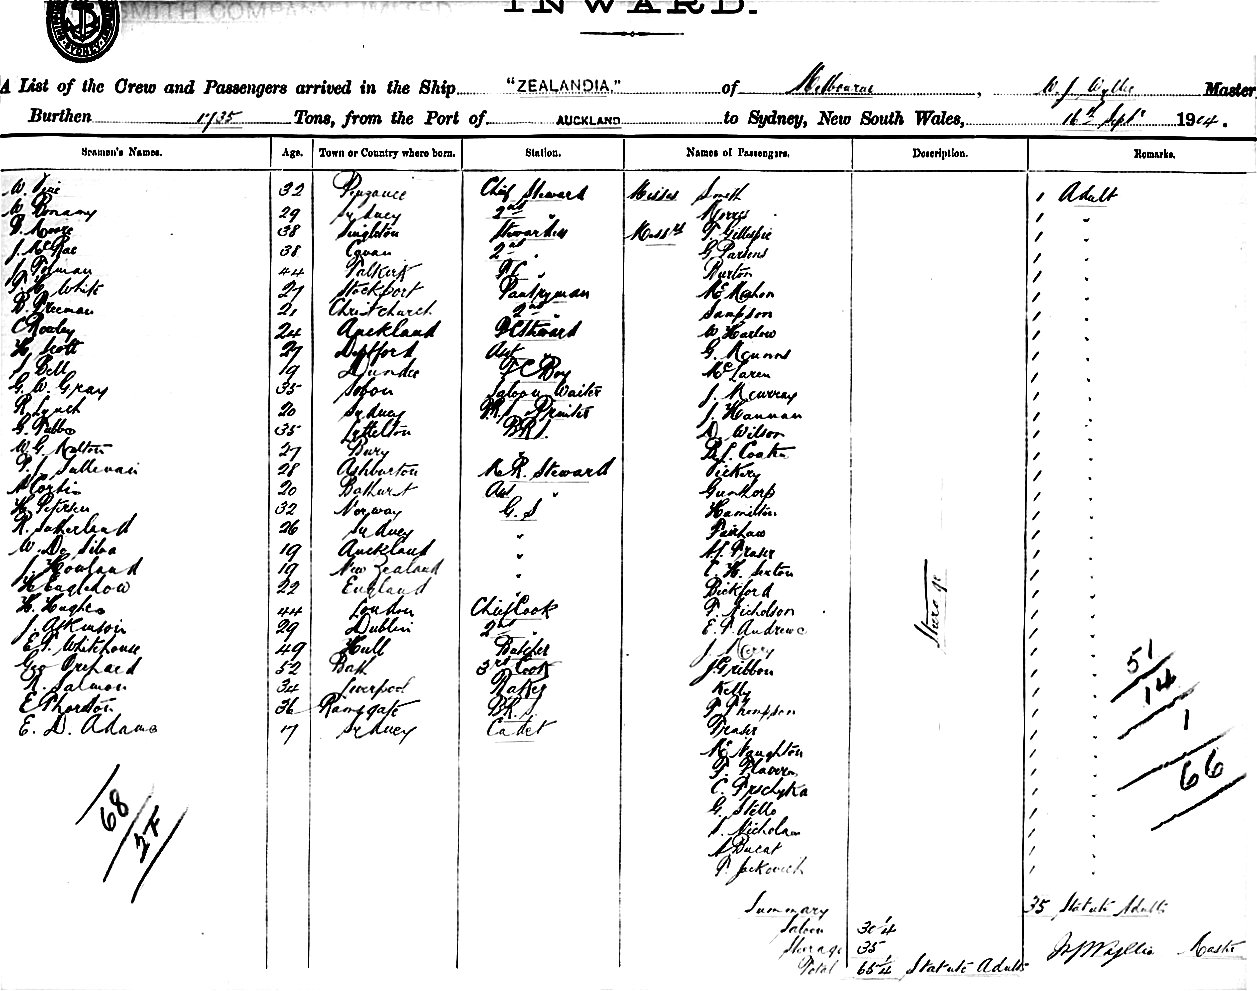 SMITH COMPANY LIMITED
INWARD.
A List of the Crew and Passengers arrived in the Ship "ZEALANDIA," of Melbourne, W. J. Wyllie Master
Burthen 1735 Tons, from the Port of AUCKLAND to Sydney, New South Wales, 16th Sept 1904.
Seamen's Names. Age. Town or Country where born. Station. Names of Passengers. Description. Remarks.
32 Penzance Chief Steward Misses Smith 1 Adult
W Bonamy 29 Sydney 2nd " Morris 1 "
D. Moore 38 Singleton Stewardess Messrs T Gillespie 1 "
J. McRae 38 Cavan 2nd " G Parsons 1 "
44 Falkirk F.C. " Burton 1 "
T. H. White 27 Stockport Pantryman McMahon 1 "
B. Freeman 21 Christchurch 2nd " Sampson 1 "
C Rowley 24 Auckland F C Steward W Harlow 1 "
H. Scott 27 Deptford Ast " G. 1 "
J Bell 19 Dundee F C Boy McLaren 1 "
G. W. Gray 35 Saloon Waiter J. Murray 1 "
R Lynch 20 Sydney B.R.S. Printer J. Hannan 1 "
G. Tubbs 35 Lyttelton B.R.S. D. Wilson 1 "
W. G. 27 Bury B. J. 1 "
P. J. Sullivan 28 Ashburton M. R. Steward Vickery 1 "
20 Bathurst Ast " Gunthorp 1 "
H. Petersen 32 Norway G. S Hamilton 1 "
R. Sutherland 26 Sydney " Fairhaw 1 "
W. Da Silva 19 Auckland " Fraser 1 "
J. Howland 19 New Zealand " C. H. Sexton 1 "
H Englehow 22 England " Bickford 1 "
H. Hughes 44 London Chief Cook T. Nicholson 1 "
J. Atkinson 29 Dublin 2nd " E. P. Andrewe 1 "
E. T. Whitehouse 49 Hull Butcher J. 1 "
Geo Orchard 52 Bath 3rd Cook J. Gribbon 1 "
R. Salmon 34 Liverpool Baker Kelly 1 "
E Thordon 36 Ramsgate B.R.S. T Thompson 1 "
E. D. Adams 17 Sydney Cadet Fraser 1 "
McNaughton 1 "
1 "
C. 1 "
G. Stello 1 "
Nicholas 1 "
Bucat 1 "
P. Jackovich 1 "
Steerage
51
14
1
66
68
27
Summary 35 Statute Adults
Saloon 30 1/4
Steerage 35 W J Wyllie Master
Total 65 1/4 Statute Adults